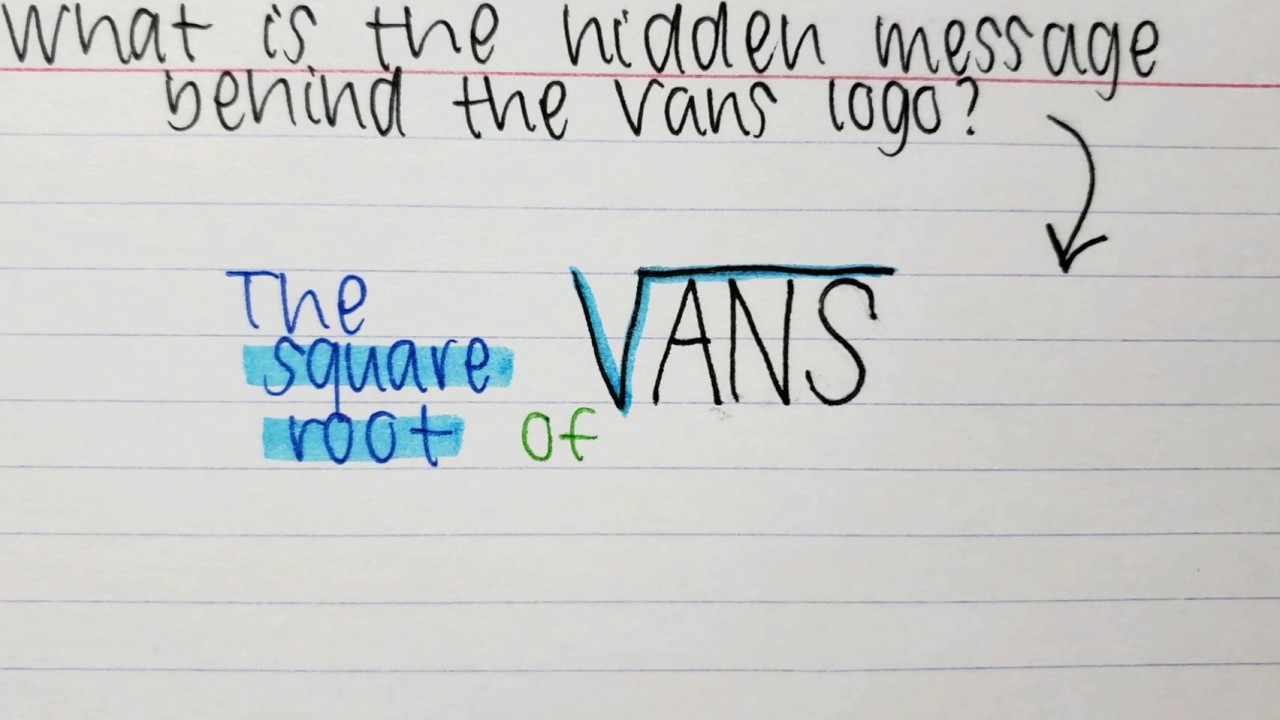 What is the hidden message
behind the vans logo?
The
square
root of
VANS